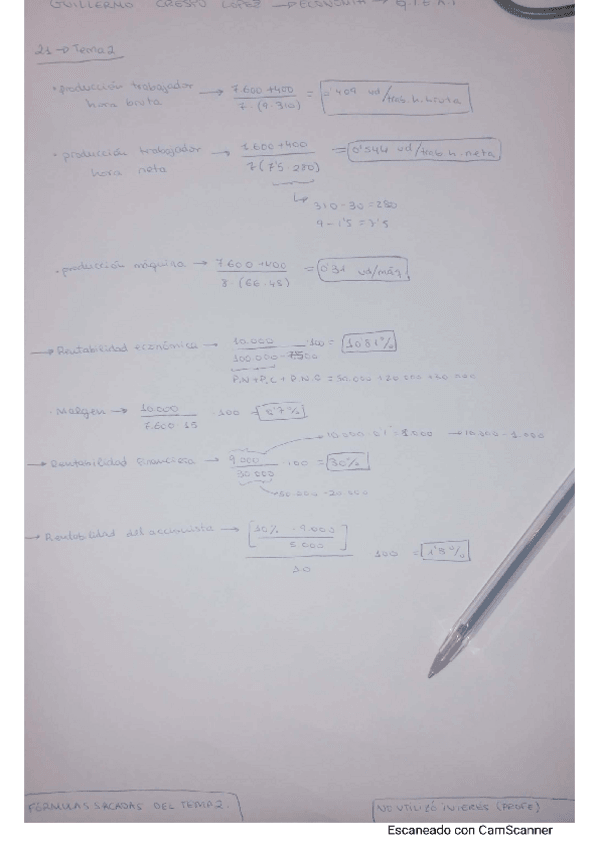 GUILLERMO CRESPO LOPEZ - ECONOMIA →
21 → Tema 2
· producción trabajador hora bruta → 7.600 + 400 / 7 · (9 · 310) = 0'409 ud/trab. h. bruta
· producción trabajador hora neta → 7.600 + 400 / 7 (7'5 · 280) = 0'544 ud/trab h. neta
310 - 30 = 280
9 - 1'5 = 7'5
· producción máquina → 7.600 + 400 / (66 · 45) = ud/máq
→ Rentabilidad económica → 10.000 / 100.000 - 7500 · 100 = 10'81%
P.N + P.C + P.N.C = 50.000
· Margen → 10.000 / 7.600 · 15 · 100 = %
→ 10.000 · 0'1 → 10.000 - 1.000
→ Rentabilidad financiera → 9.000 / 30.000 · 100 = 30%
50.000 - 20.000
→ Rentabilidad del accionista → [10% · 9.000 / 5.000] / 10 · 100 = 1'8%
FÓRMULAS SACADAS DEL TEMA 2.
NO UTILIZÓ INTERÉS (PROFE)
Escaneado con CamScanner